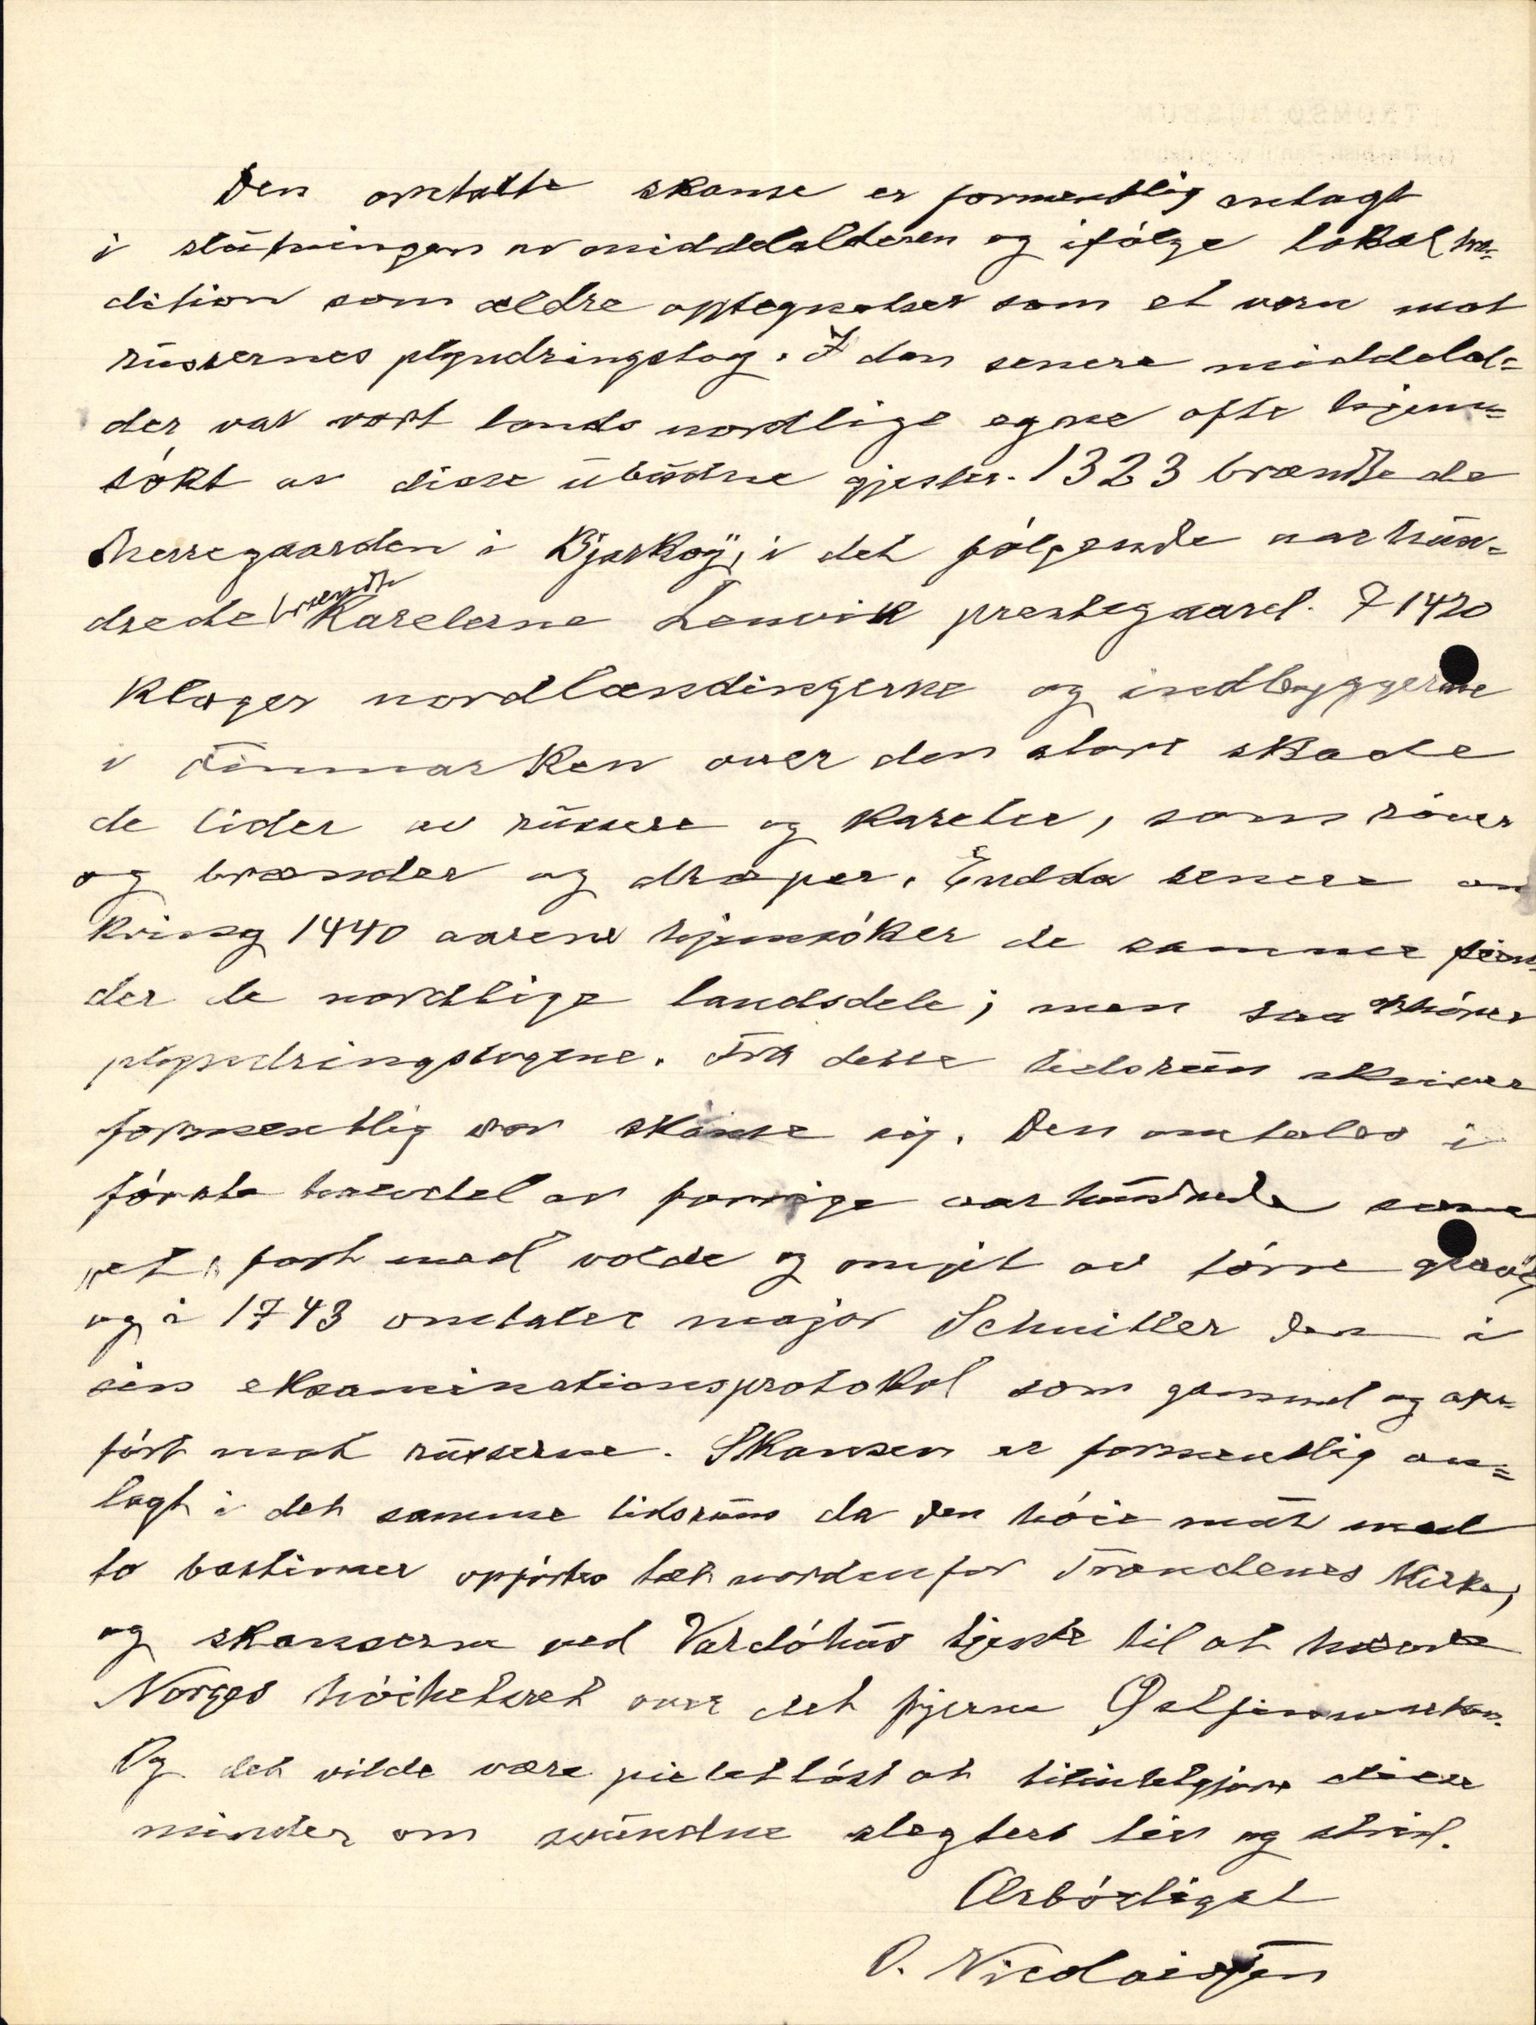 Den omtalte skanse er formentlig anlagt
i slutningen av middelalderen og ifølge lokal tra-
dition som ældre optegnelser som et vern mot
russernes plyndringstog. I den senere middelal-
der var vort lands nordlige egne ofte hjem-
søkt av disse ubudne gjester. 1323 brændte de
herregaarden i Bjarkøy, i det følgende aarhun-
drede brændte Karelerne Lenvik prestegaard. I 1420
klager nordlændingerne og indbyggerne
i Finmarken over den store skade
de lider av russere og kareler, som røver
og brænder og dræper. Endda senere om
kring 1440 aarene hjemsøker de samme fien
der de nordlige landsdele; men saa ophører
plyndringstogene. Fra dette tidsrum skriver
formentlig vor skanse sig. Den omtales i
første trenedel av forrige aarhundrede som
"et" fort med volde og omgit av tørre grave
og i 1743 omtaler major Schnitler den i
sin eksaminationsprotokol som gammel og op-
ført mot russerne. Skansen er formentlig an-
lagt i det samme tidsrum da den høie mur med
to bastioner opførtes tæt nordenfor Trondenes kirke,
og skanserne ved Vardøhus tjente til at hævde
Norges høihetsret over det fjerne Østfinmarken.
Og det vilde være pietetløst at tilintetgjøre disse
minder om svundne slegters liv og strid.
Ærbødigst
O. Nicolaissen